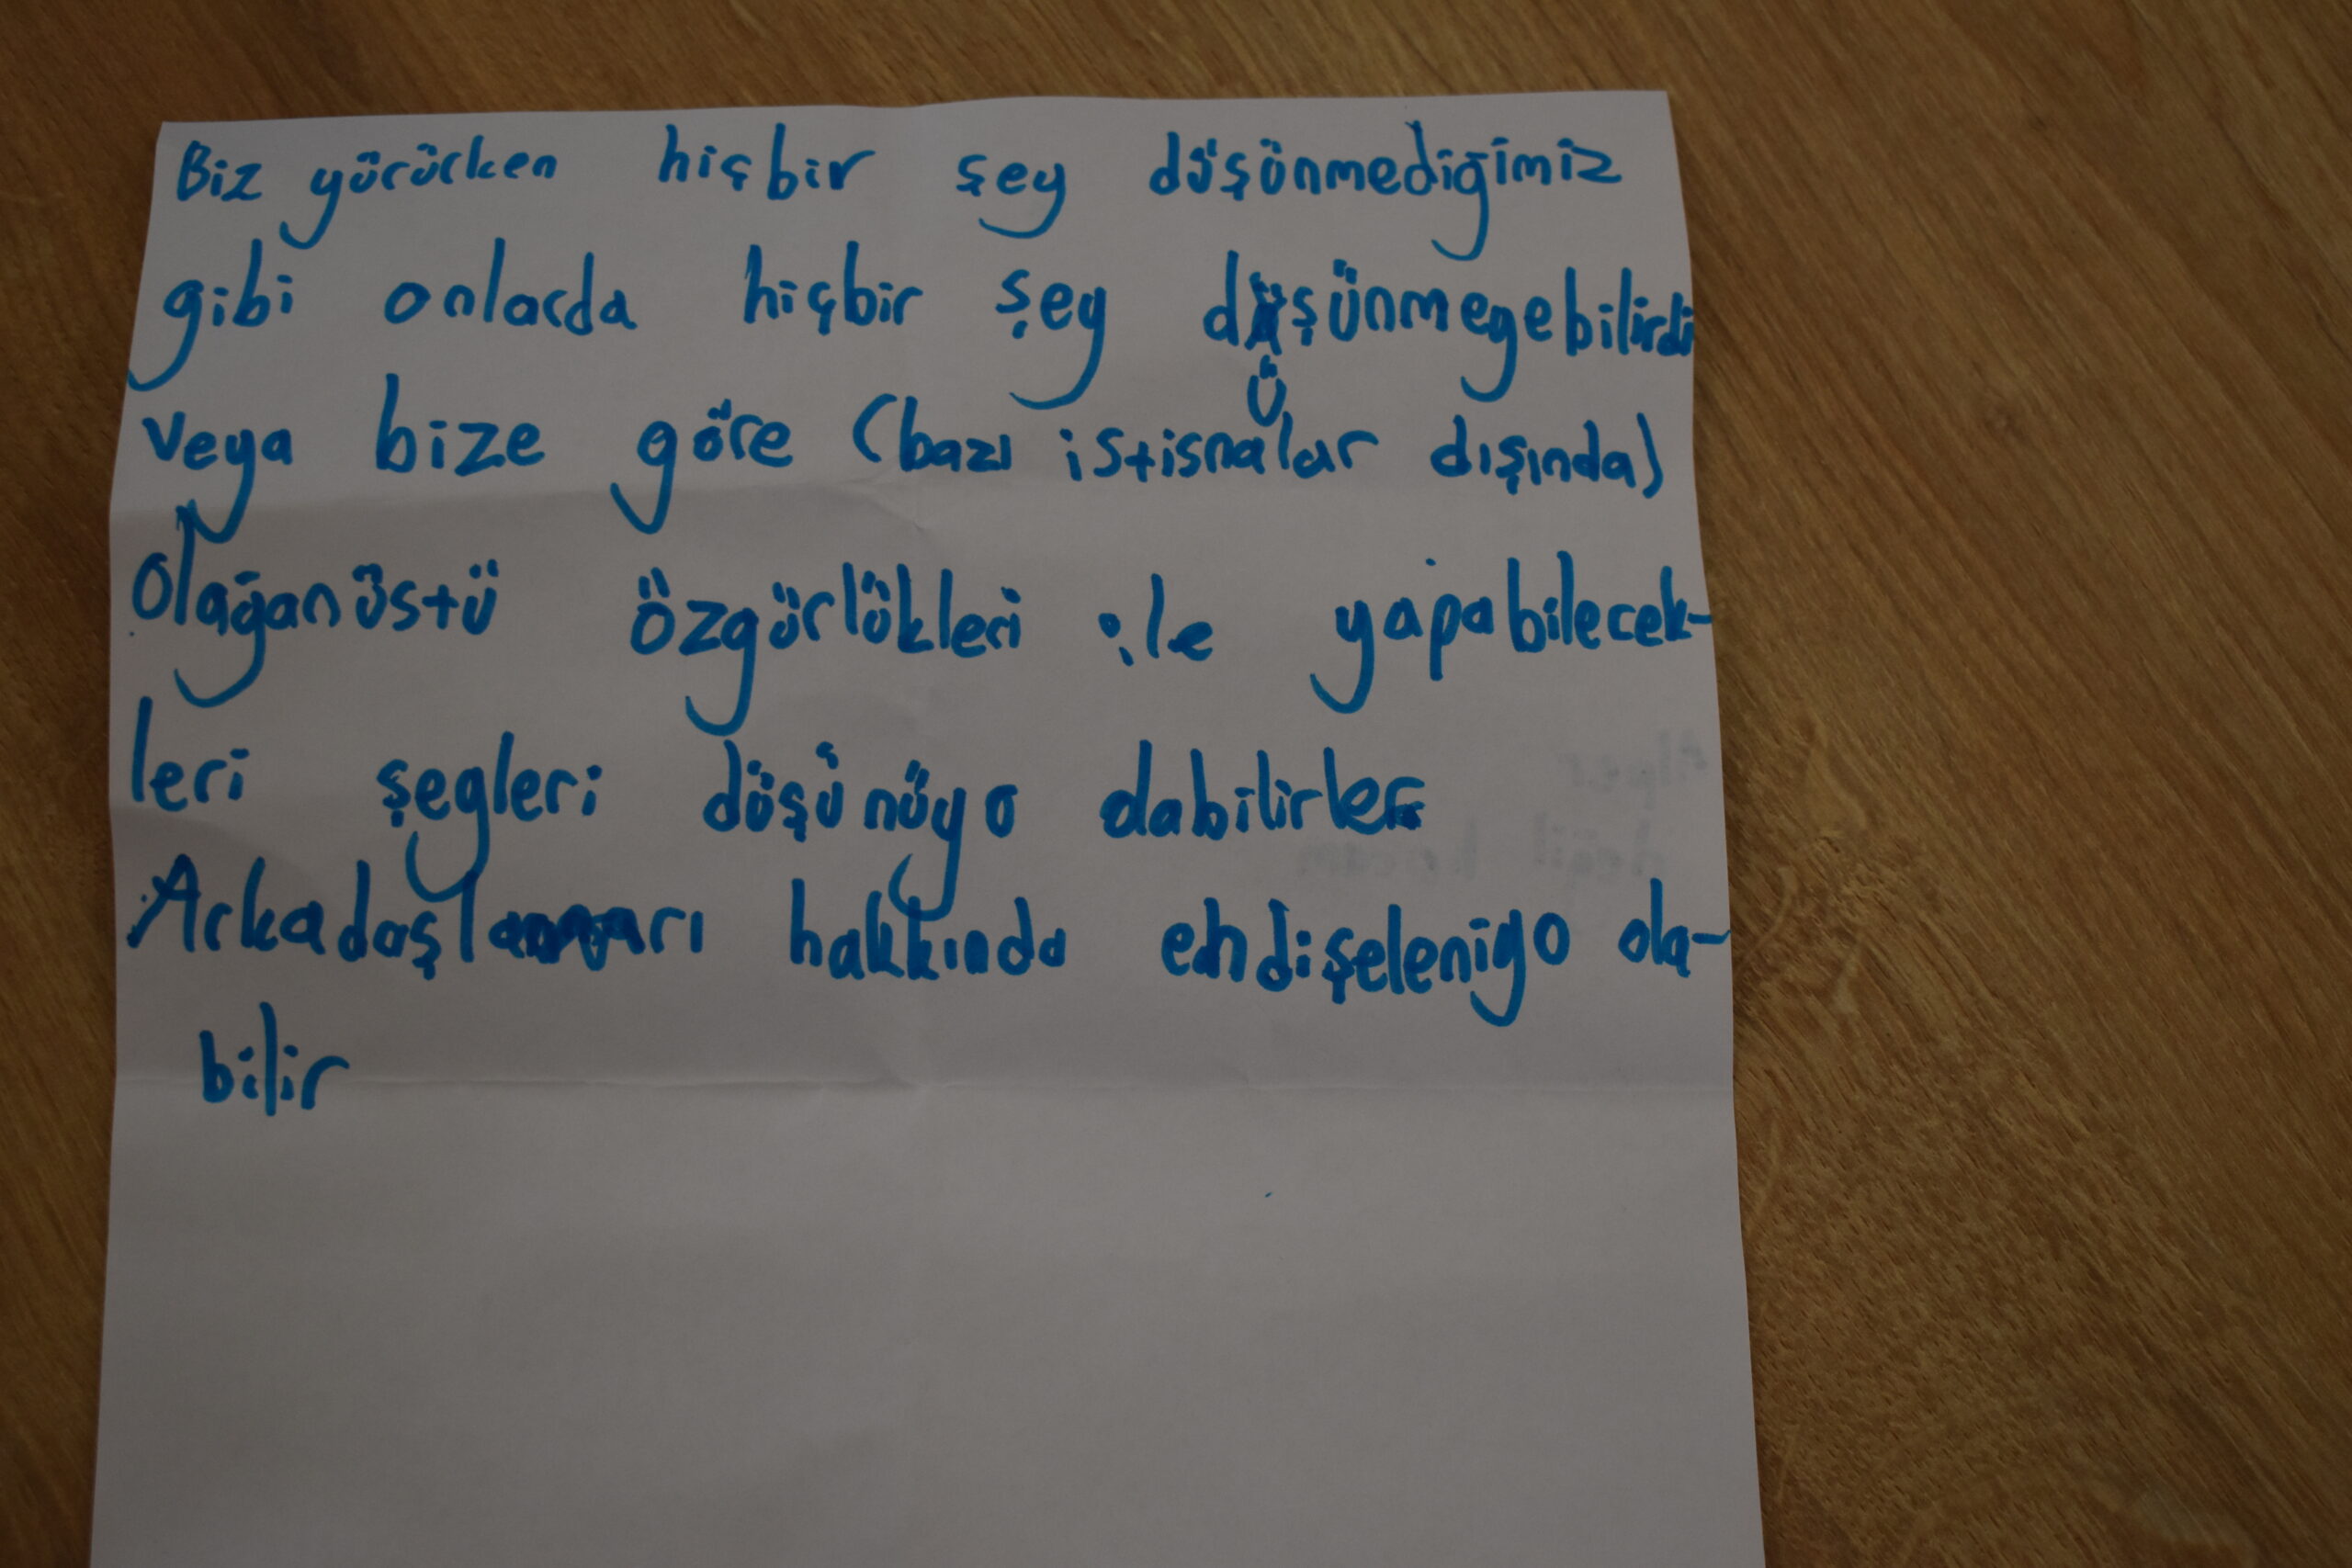 Biz yürürken hiçbir şey düşünmediğimiz
gibi onlarda hiçbir şey düşünmeyebilirdi
veya bize göre (bazı istisnalar dışında)
Olağanüstü özgürlükleri ile yapabilecek-
leri şeyleri düşünüyo dabilirler
Arkadaşları hakkında endişeleniyo ola-
bilir